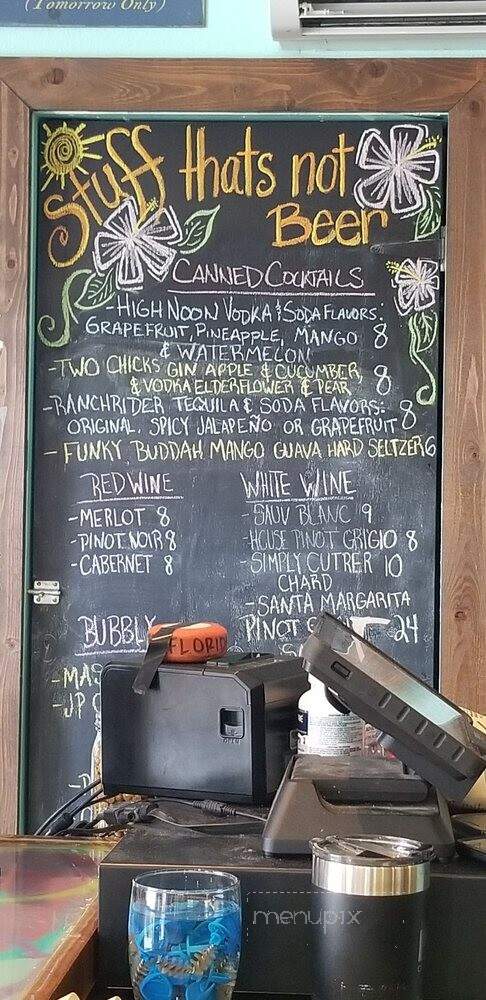 (Tomorrow Only)
Stuff thats not
Beer
CANNED COCKTAILS
- HIGH NOON VODKA & SODA FLAVORS:
GRAPEFRUIT, PINEAPPLE, MANGO 8
& WATERMELON
- TWO CHICKS GIN APPLE & CUCUMBER,
& VODKA ELDERFLOWER & PEAR 8
- RANCHRIDER TEQUILA & SODA FLAVORS:
ORIGINAL, SPICY JALAPEÑO OR GRAPEFRUIT 8
- FUNKY BUDDAH MANGO GUAVA HARD SELTZER 6
RED WINE
- MERLOT 8
- PINOT NOIR 8
- CABERNET 8
WHITE WINE
- SAUV BLANC 9
- HOUSE PINOT GRIGIO 8
- SIMPLY CUTRER 10
CHARD
- SANTA MARGARITA
PINOT 24
BUBBLY
FLORI
- MAS
- JP
OPEN
menupix